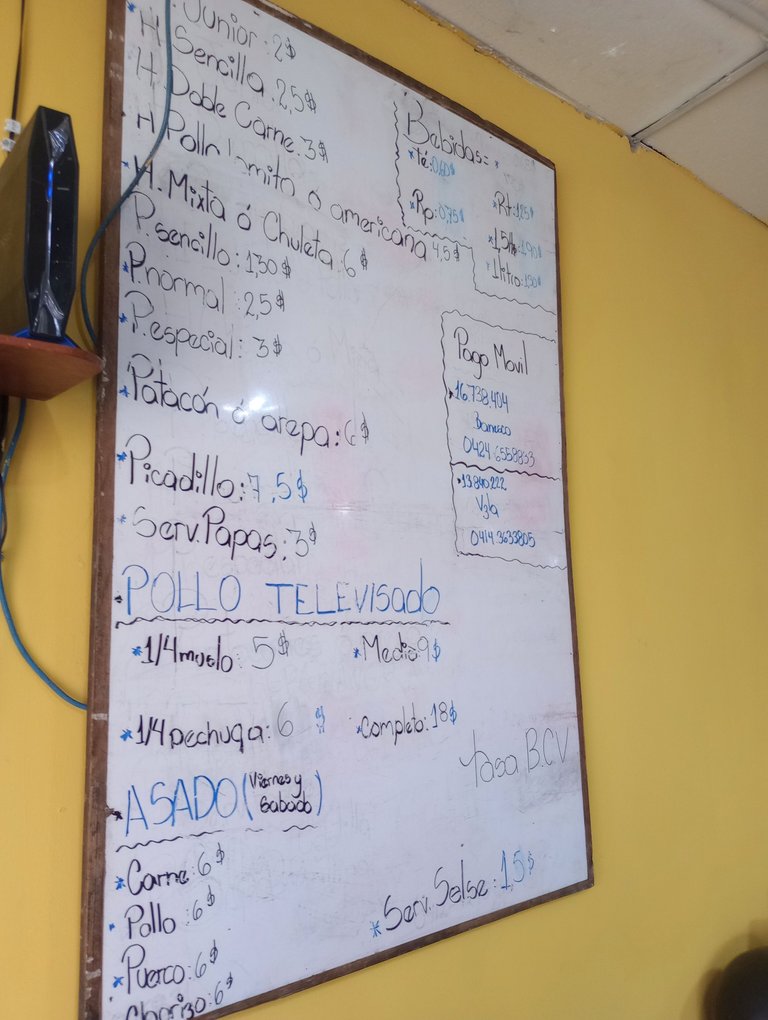 H. Junior: 2$
H Sencilla: 2,5$
H. Doble Carne. 3$
H Pollo lomito ó americana 4,5$
H. Mixta ó Chuleta: 6$
P. sencillo: 1,30$
P.normal: 2,5$
P.especial: 3$
Patacón ó arepa: 6$
Picadillo: 7,5$
Serv. Papas: 3$
POLLO TELEVISado
1/4 muslo: 5$
Medio 9$
1/4 pechuga: 6 $
Completo: 18$
ASADO (Viernes y
Sabado)
Carne: 6$
Pollo: 6$
Puerco: 6$
Chorizo: 6$
Bebidas=
Té: 0,60$
Rp: 0,75$
Rt: 1,25$
1,5lts: 1,90$
1litro: 1,50$
Pago Movil
16.738.404
Banesco
0424 6558833
13840222
Vzla
0414.3633805
tasa B.CV
Serv. Salse: 1,5$